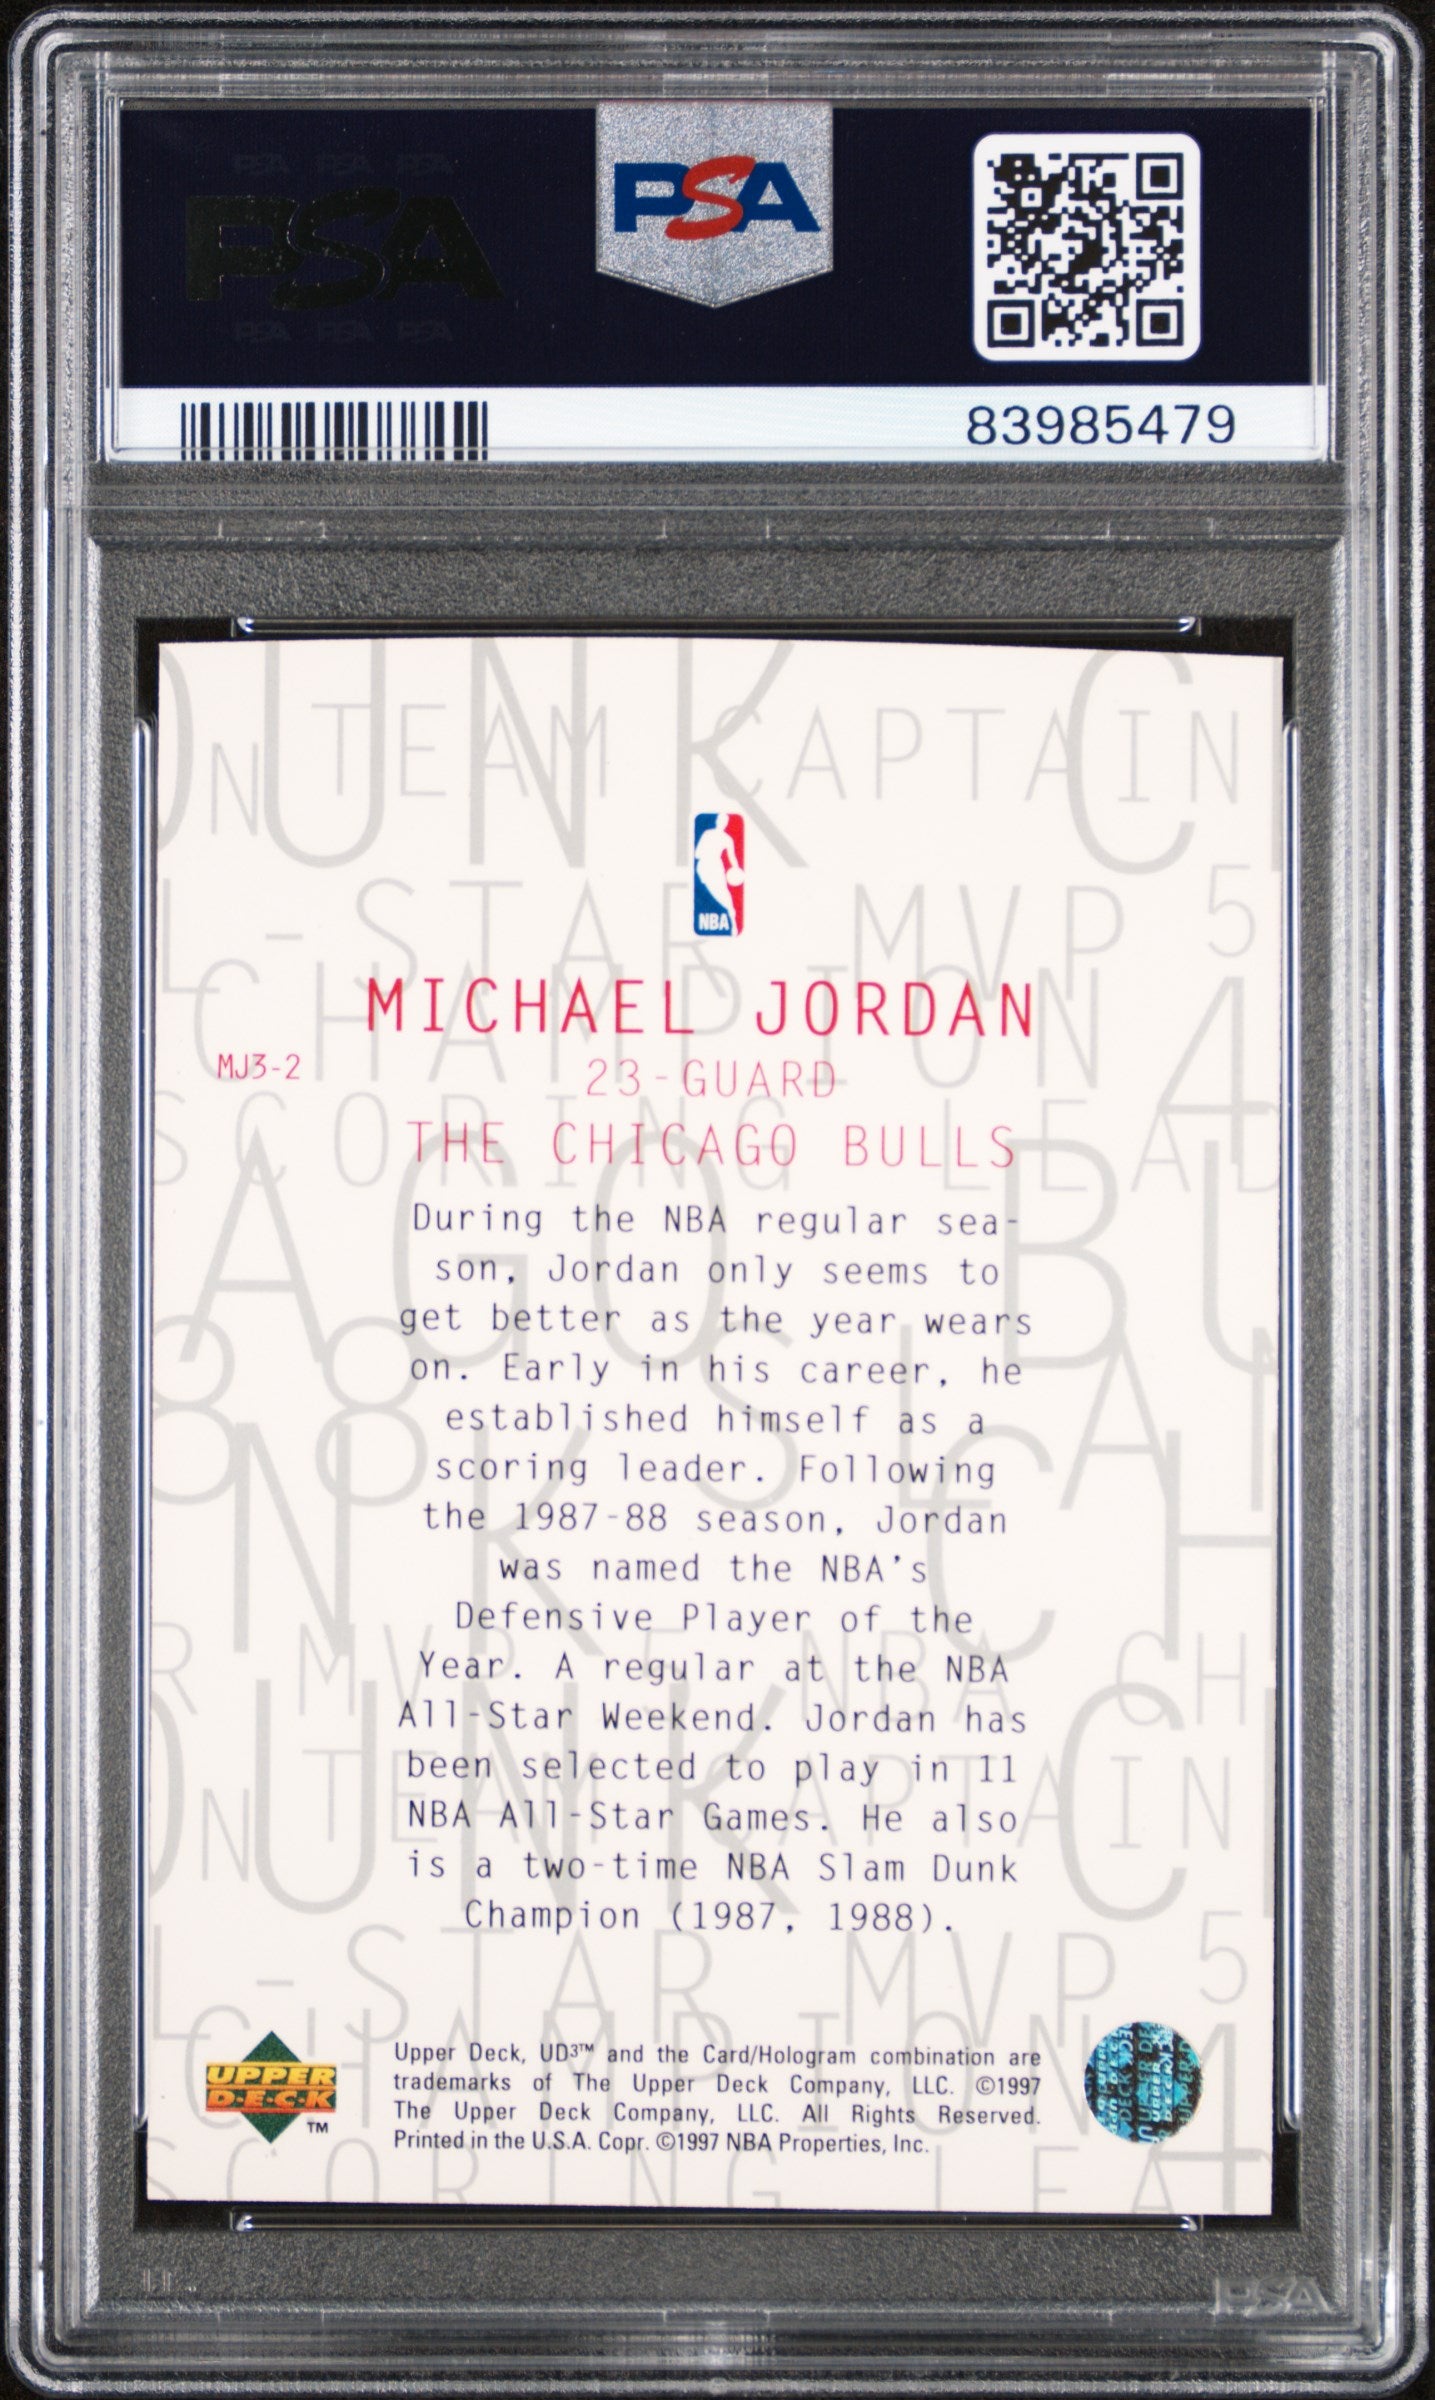 PSA PSA PSA
PSA
PSA PSA PSA
PSA
83985479
DUNK
ON TEAM CAPTAIN
L-STAR MVP 5
CHAMPION
SCORING LEAD
NBA
MICHAEL JORDAN
MJ3-2
23-GUARD
THE CHICAGO BULLS
During the NBA regular sea-
son, Jordan only seems to
get better as the year wears
on. Early in his career, he
established himself as a
scoring leader. Following
the 1987-88 season, Jordan
was named the NBA's
Defensive Player of the
Year. A regular at the NBA
All-Star Weekend. Jordan has
been selected to play in 11
NBA All-Star Games. He also
is a two-time NBA Slam Dunk
Champion (1987, 1988).
UPPER
D·E·C·K
TM
Upper Deck, UD3™ and the Card/Hologram combination are
trademarks of The Upper Deck Company, LLC. ©1997
The Upper Deck Company, LLC. All Rights Reserved.
Printed in the U.S.A. Copr. ©1997 NBA Properties, Inc.
PSA